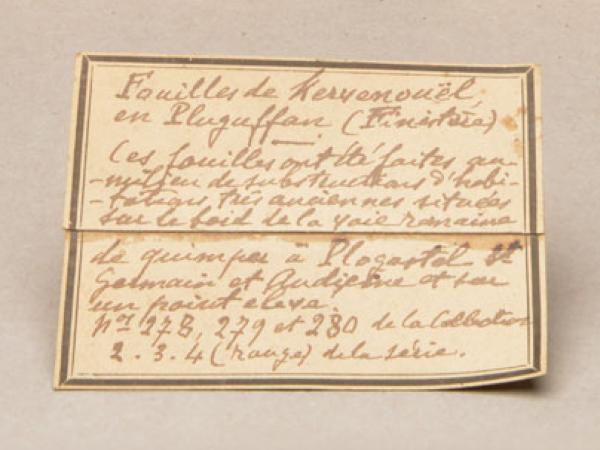 Fouilles de Kervenouël,
en Pluguffan (Finistère)
Ces fouilles ont été faites au
-milieu de substructions d'habi-
-tations très anciennes situées
sur le bord de la voie romaine
de quimper à Plogastel St
Germain et Audierne et sur
un point elevé.
nos 278, 279 et 280 de la Collection
2. 3. 4 (rouge) de la série.